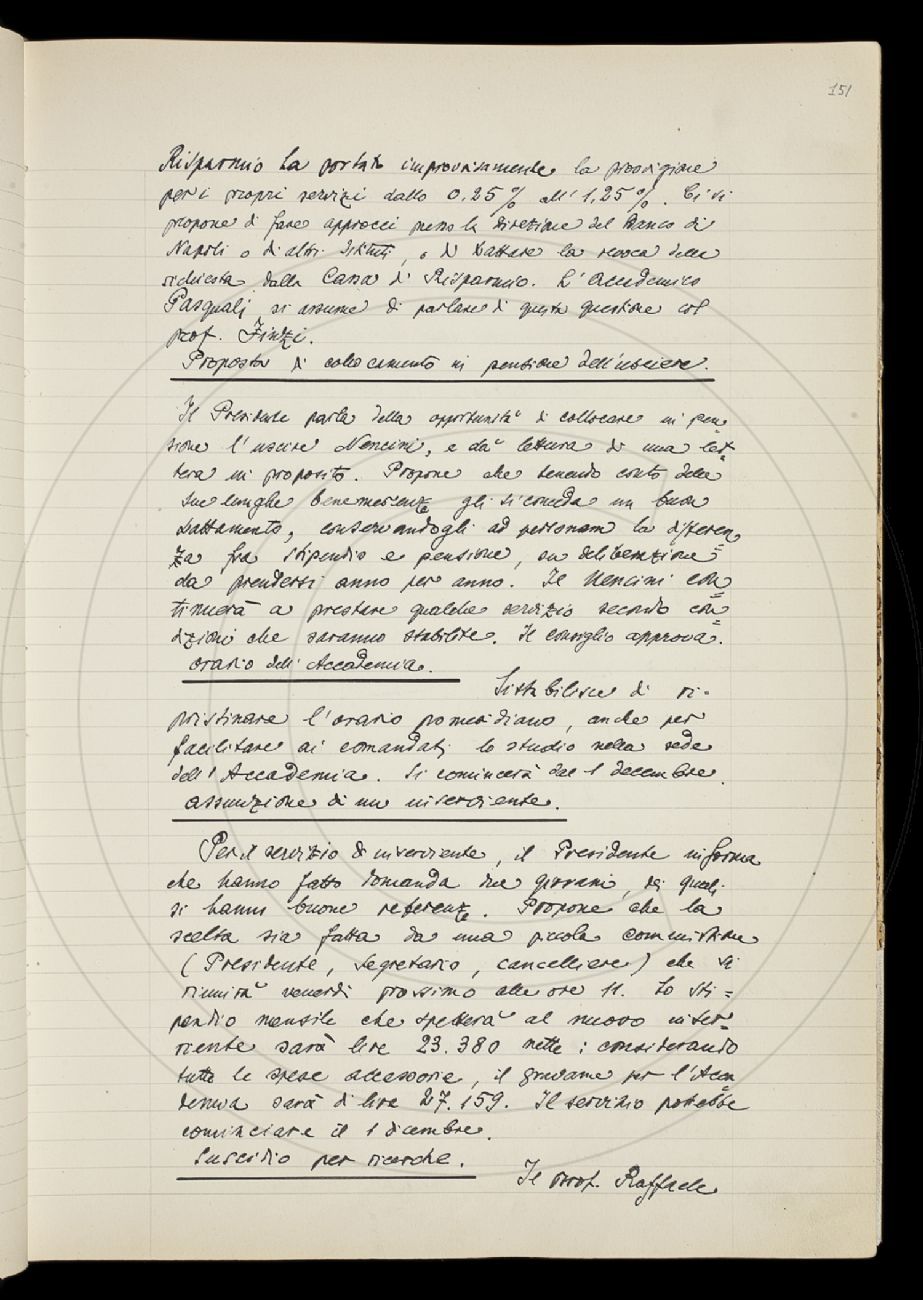 151
Risparmio ha portato improvvisamente la provvigione
per i propri servizi dallo 0,25% all'1,25%. Ci si
propone di fare approcci presso la Direzione del Banco di
Napoli o di altri Istituti, o di trattare la revoca della
richiesta dalla Cassa di Risparmio. L'Accademico
Pasquali si assume di parlare di questa questione col
prof. Finzi.
Proposta di collocamento in pensione dell'usciere.
Il Presidente parla della opportunità di collocare in pen=
sione l'usciere Nencini, e dà lettura di una let=
tera in proposito. Propone che tenendo conto delle
sue lunghe benemerenze gli si conceda un buon
trattamento, conservandogli ad personam la differen=
za fra stipendio e pensione, su deliberazione
da prendersi anno per anno. Il Nencini con=
tinuerà a prestare qualche servizio secondo con=
dizioni che saranno stabilite. Il consiglio approva.
orario dell'Accademia.
Si stabilisce di ri-
pristinare l'orario pomeridiano, anche per
facilitare ai comandati lo studio nella sede
dell'Accademia. Si comincerà dal 1 decembre.
assunzione di un inserviente.
Per il servizio di inserviente, il Presidente informa
che hanno fatto domanda due giovani, dei quali
si hanno buone referenze. Propone che la
scelta sia fatta da una piccola commissione
(Presidente, Segretario, cancelliere) che si
riunirà venerdì prossimo alle ore 11. Lo sti=
pendio mensile che spetterà al nuovo inser=
viente sarà lire 23.380 nette; considerando
tutte le spese accessorie, il gravame per l'Acca=
demia sarà di lire 27.159. Il servizio potrebbe
cominciare il 1 dicembre.
Sussidio per ricerche.
Il prof. Raffaele